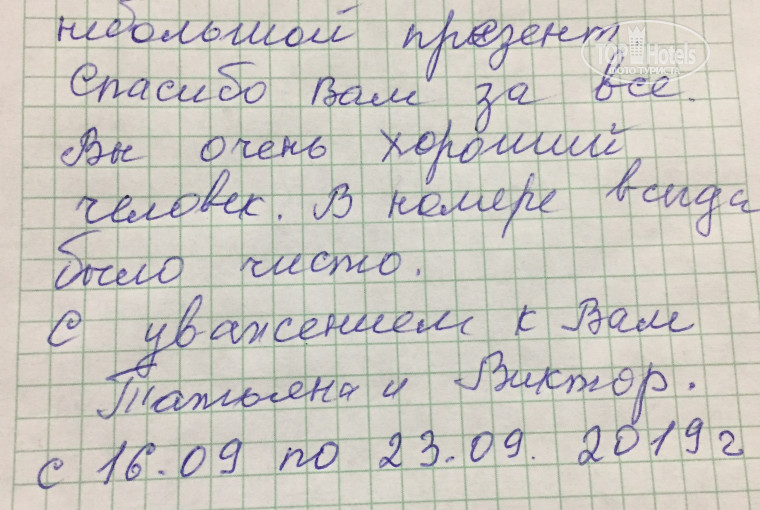 небольшой презент
TOP Hotels
ФОТО ТУРИСТА
Спасибо Вам за все.
Вы очень хороший
человек. В номере всегда
было чисто.
С уважением к Вам
Татьяна и Виктор.
с 16.09 по 23.09. 2019г